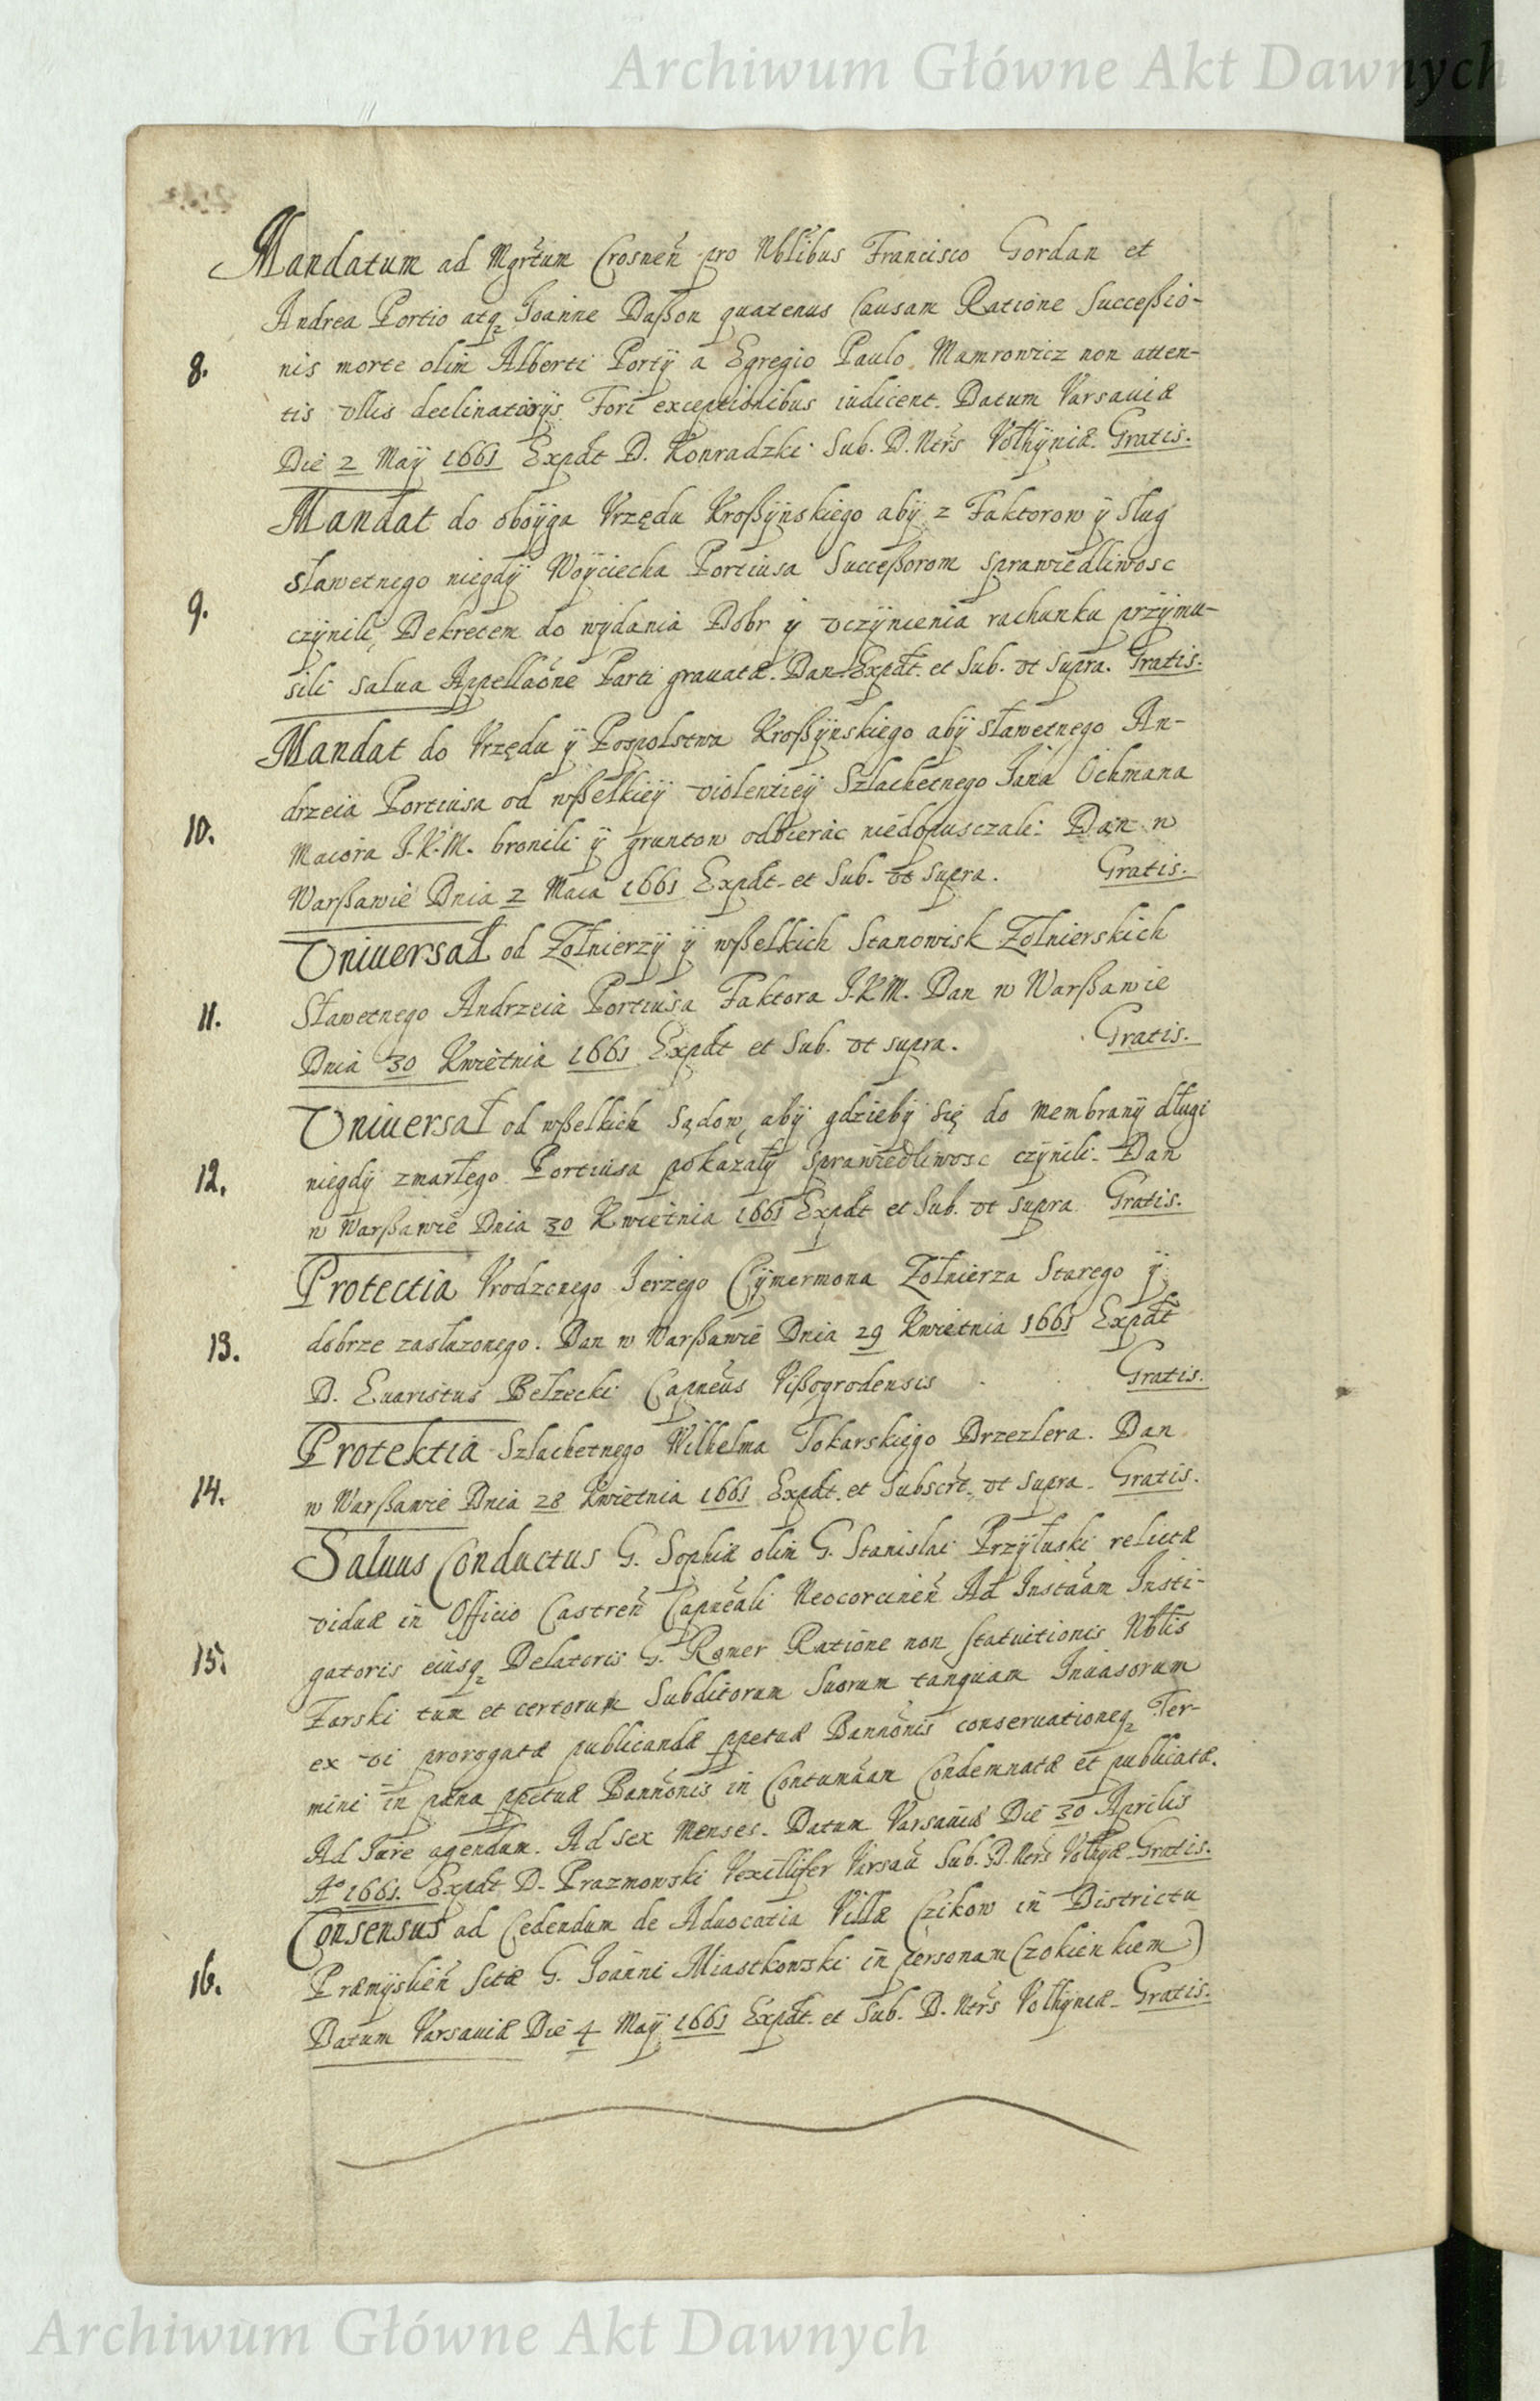 Archiwum Główne Akt Dawnych
Mandatum ad Mgrtum Crosnen pro Nblibus Francisco Gordan et
Andrea Portio atq Joanne Daßon quatenus Causam Ratione Succeßio-
8. nis morte olim Alberti Portÿ a Egregio Paulo Mamrowicz non atten-
tis vllis declinatorÿs Fori exceptionibus iudicent. Datum Varsauiæ
Die 2 Maÿ 1661 Expdt D. Konradzki Sub. D. Ntrs Volhÿniæ Gratis.
Mandat do oboÿga Vrzędu Kroßÿnskiego abÿ z Faktorow ÿ Sług
sławetnego niegdÿ Woÿciecha Portiusa Succeßorom sprawiedliwosc
9. czÿnili, Dekretem do wÿdania Dobr ÿ vczÿnienia rachunku przÿmu-
sili salua Appellaone Parti grauatæ. Dan Expdt. et Sub. vt supra. Gratis.
Mandat do Vrzędu ÿ Pospolstwa Kroßÿnskiego abÿ sławetnego An-
drzeia Portiusa od wßelkieÿ violentieÿ Szlachetnego Jana Ochmana
10. Maiora J.K.M. bronili ÿ gruntow odbierac niedopusczali. Dan w
Warßawie Dnia 2 Maia 1661 Expdt. et Sub. vt supra. Gratis.
Vniuersał od Żołnierzÿ ÿ wßelkich Stanowisk Żołnierskich
11. Sławetnego Andrzeia Portiusa Faktora J.K.M. Dan w Warßawie
Dnia 30 Kwietnia 1661 Expdt et Sub. vt supra. Gratis.
Vniuersał od wßelkich sądow, abÿ gdziebÿ się do membranÿ długi
12. niegdÿ zmarłego Portiusa pokazałÿ sprawiedliwosc czÿnili. Dan
w Warßawie Dnia 30 Kwietnia 1661 Expdt et Sub. vt supra Gratis.
Protectia Vrodzonego Jerzego Cÿmermona Żołnierza Starego ÿ
13. dobrze zasłużonego. Dan w Warßawie Dnia 29 Kwietnia 1661 Expdt
D. Euaristus Bełzecki Capneus Vißogrodensis Gratis.
Protektia Szlachetnego Wilhelma Tokarskiego Drzezlera. Dan
14. w Warßawie Dnia 28 Kwietnia 1661 Expdt. et Subscrt. vt supra. Gratis.
Saluus Conductus G. Sophiæ olim G. Stanislai Przÿłuski relictæ
viduæ in Officio Castren Capneali Neocorcinen Ad Instaam Insti-
15. gatoris eiusq Delatoris G. Romer Ratione non statuitionis Nblis
Żarski tum et certorum Subditorum suorum tanquam Inuasorum
ex vi prorogatæ publicandæ ppetuæ Bannonis conseruationeq Ter-
mini in pæna ppetuæ Bannonis in Contumaam Condemnatæ et publicatæ.
Ad Jure agendum. Ad sex Menses. Datum Varsauiæ Die 30 Aprilis
Aº 1661. Expdt D. Prazmowski Vexillifer Varsau Sub. D. Ntrs Volhyæ Gratis.
Consensus ad Cedendum de Aduocatia Villæ Czikow in Districtu
16. Præmÿslien sitæ G. Joanni Miastkowski in personam Czokienkiem)
Datum Varsauiæ Die 4 Maÿ 1661 Expdt. et Sub. D. Ntrs Volhÿniæ Gratis.
Archiwum Główne Akt Dawnych